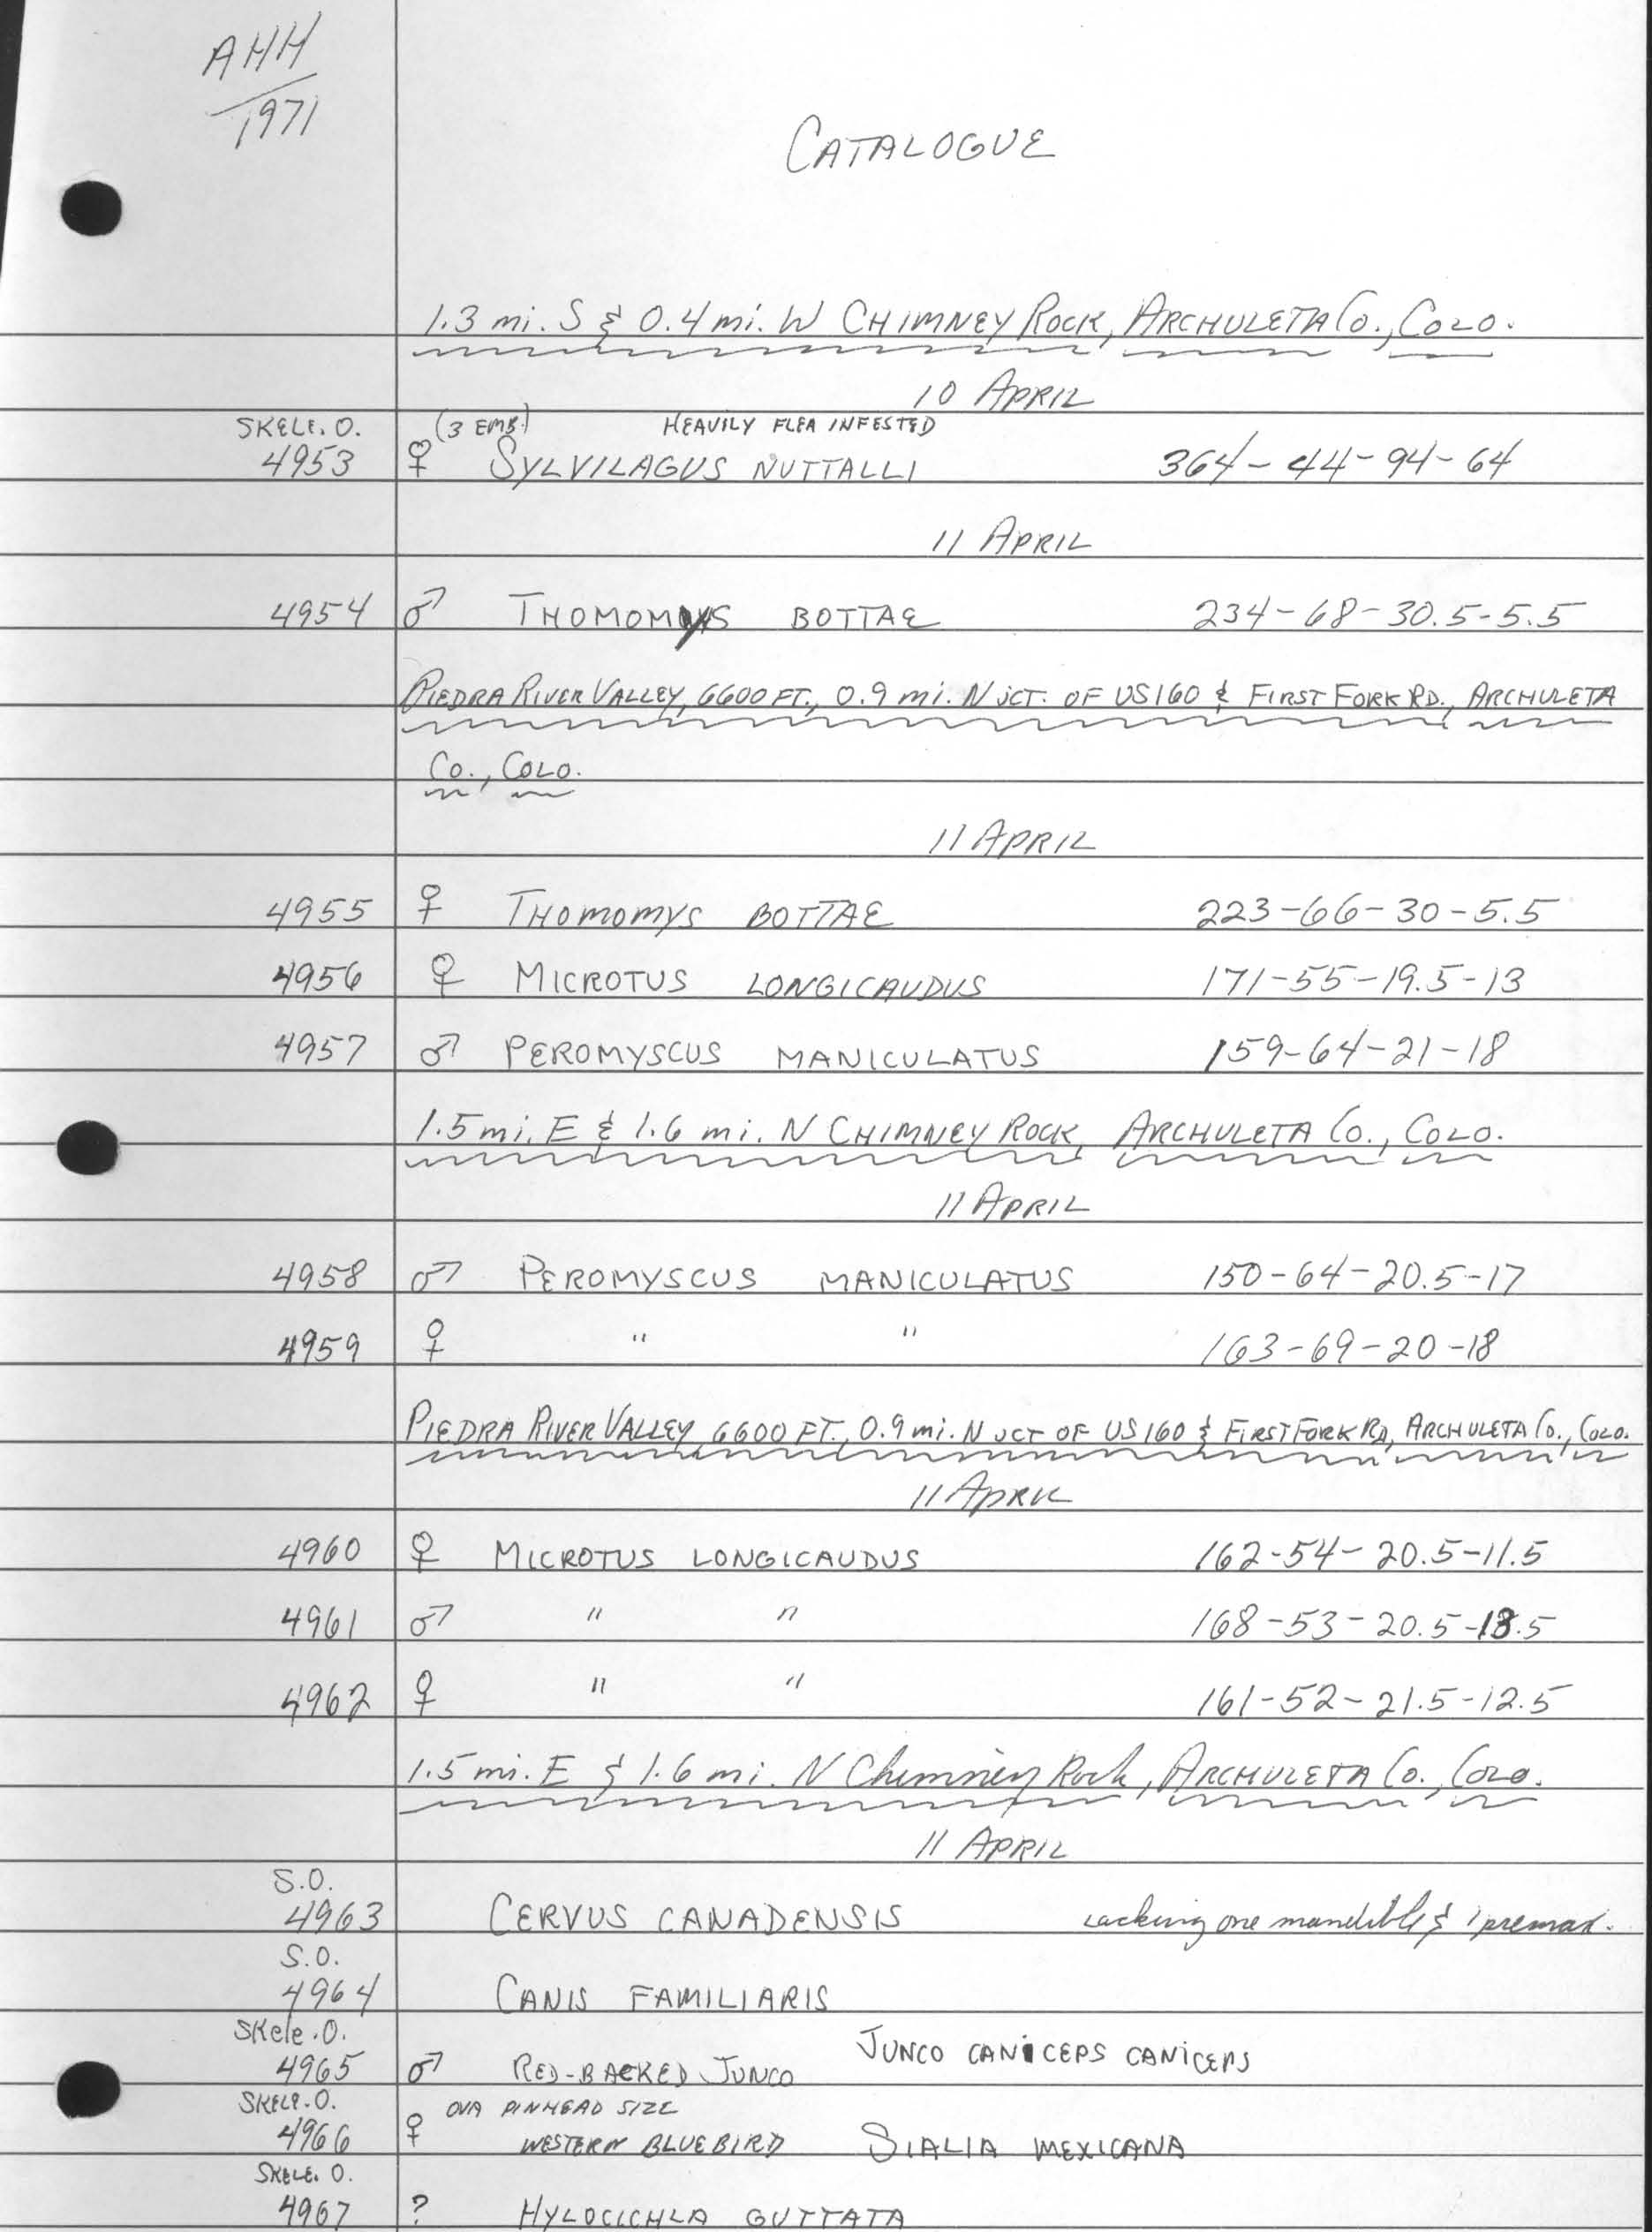 AHH
1971
CATALOGUE
1.3 mi. S & 0.4 mi. W CHIMNEY ROCK, ARCHULETA CO., COLO.
10 APRIL
SKELE. O. (3 EMB.) HEAVILY FLEA INFESTED
4953 ♀ SYLVILAGUS NUTTALLI 364-44-94-64
11 APRIL
4954 ♂ THOMOMYS BOTTAE 234-68-30.5-5.5
PIEDRA RIVER VALLEY, 6600 FT., 0.9 mi. N JCT. OF US 160 & FIRST FORK RD., ARCHULETA
CO., COLO.
11 APRIL
4955 ♀ THOMOMYS BOTTAE 223-66-30-5.5
4956 ♀ MICROTUS LONGICAUDUS 171-55-19.5-13
4957 ♂ PEROMYSCUS MANICULATUS 159-64-21-18
1.5 mi. E & 1.6 mi. N CHIMNEY ROCK, ARCHULETA CO., COLO.
11 APRIL
4958 ♂ PEROMYSCUS MANICULATUS 150-64-20.5-17
4959 ♀ " " 163-69-20-18
PIEDRA RIVER VALLEY, 6600 FT., 0.9 mi. N JCT OF US 160 & FIRST FORK RD, ARCHULETA CO., COLO.
11 APRIL
4960 ♀ MICROTUS LONGICAUDUS 162-54-20.5-11.5
4961 ♂ " " 168-53-20.5-13.5
4962 ♀ " " 161-52-21.5-12.5
1.5 mi. E & 1.6 mi. N Chimney Rock, ARCHULETA CO., COLO.
11 APRIL
S.O.
4963 CERVUS CANADENSIS Lacking one mandible & 1 premax.
S.O.
4964 CANIS FAMILIARIS
SKele.O. JUNCO CANICEPS CANICEPS
4965 ♂ RED-BACKED JUNCO
SKELE.O. OVA PINHEAD SIZE
4966 ♀ WESTERN BLUEBIRD SIALIA MEXICANA
SKELE. O.
4967 ? HYLOCICHLA GUTTATA